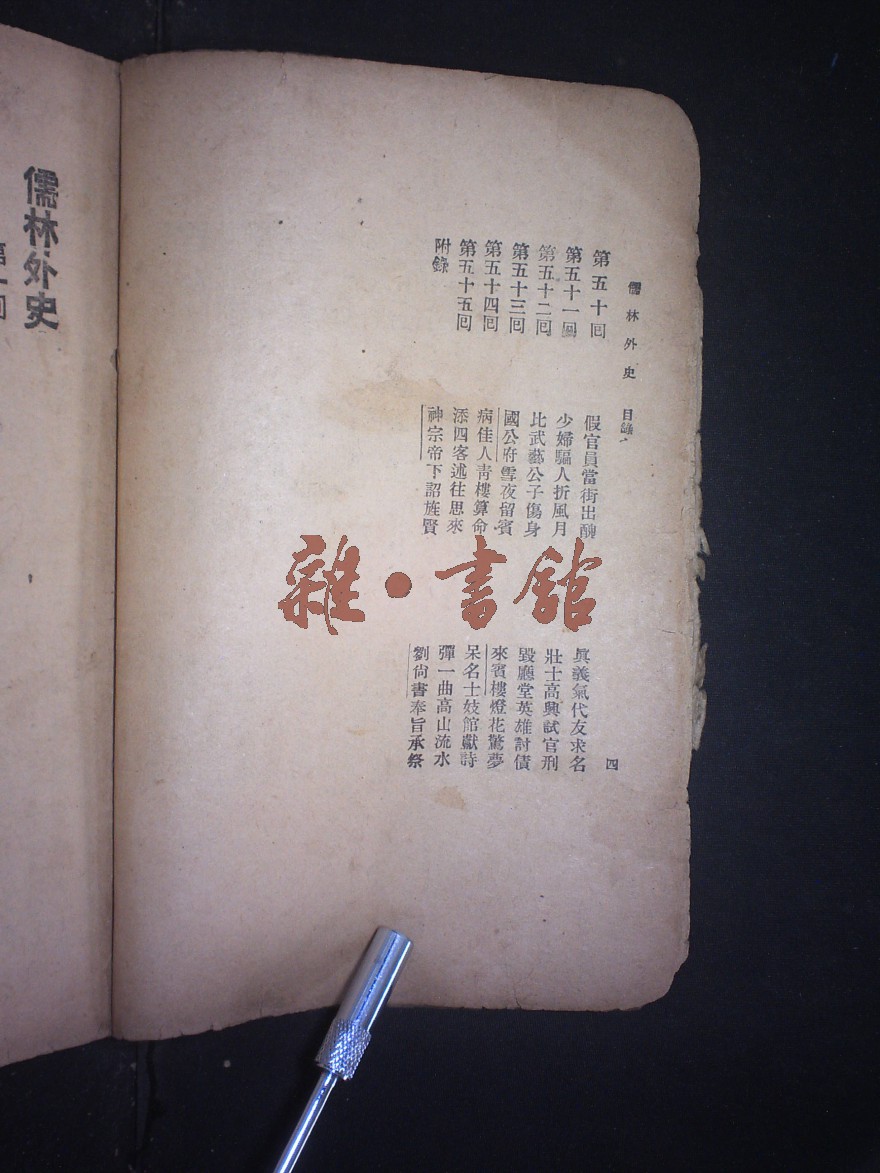 儒林外史 目錄
四
第五十回 假官員當街出醜 眞義氣代友求名
第五十一回 少婦騙人折風月 壯士高興試官刑
第五十二回 比武藝公子傷身 毀廳堂英雄討債
第五十三回 國公府雪夜留賓 來賓樓燈花驚夢
第五十四回 病佳人青樓算命 呆名士妓館獻詩
第五十五回 添四客述往思來 彈一曲高山流水
附錄 神宗帝下詔旌賢 劉尙書奉旨承祭
儒林外史
雜·書館